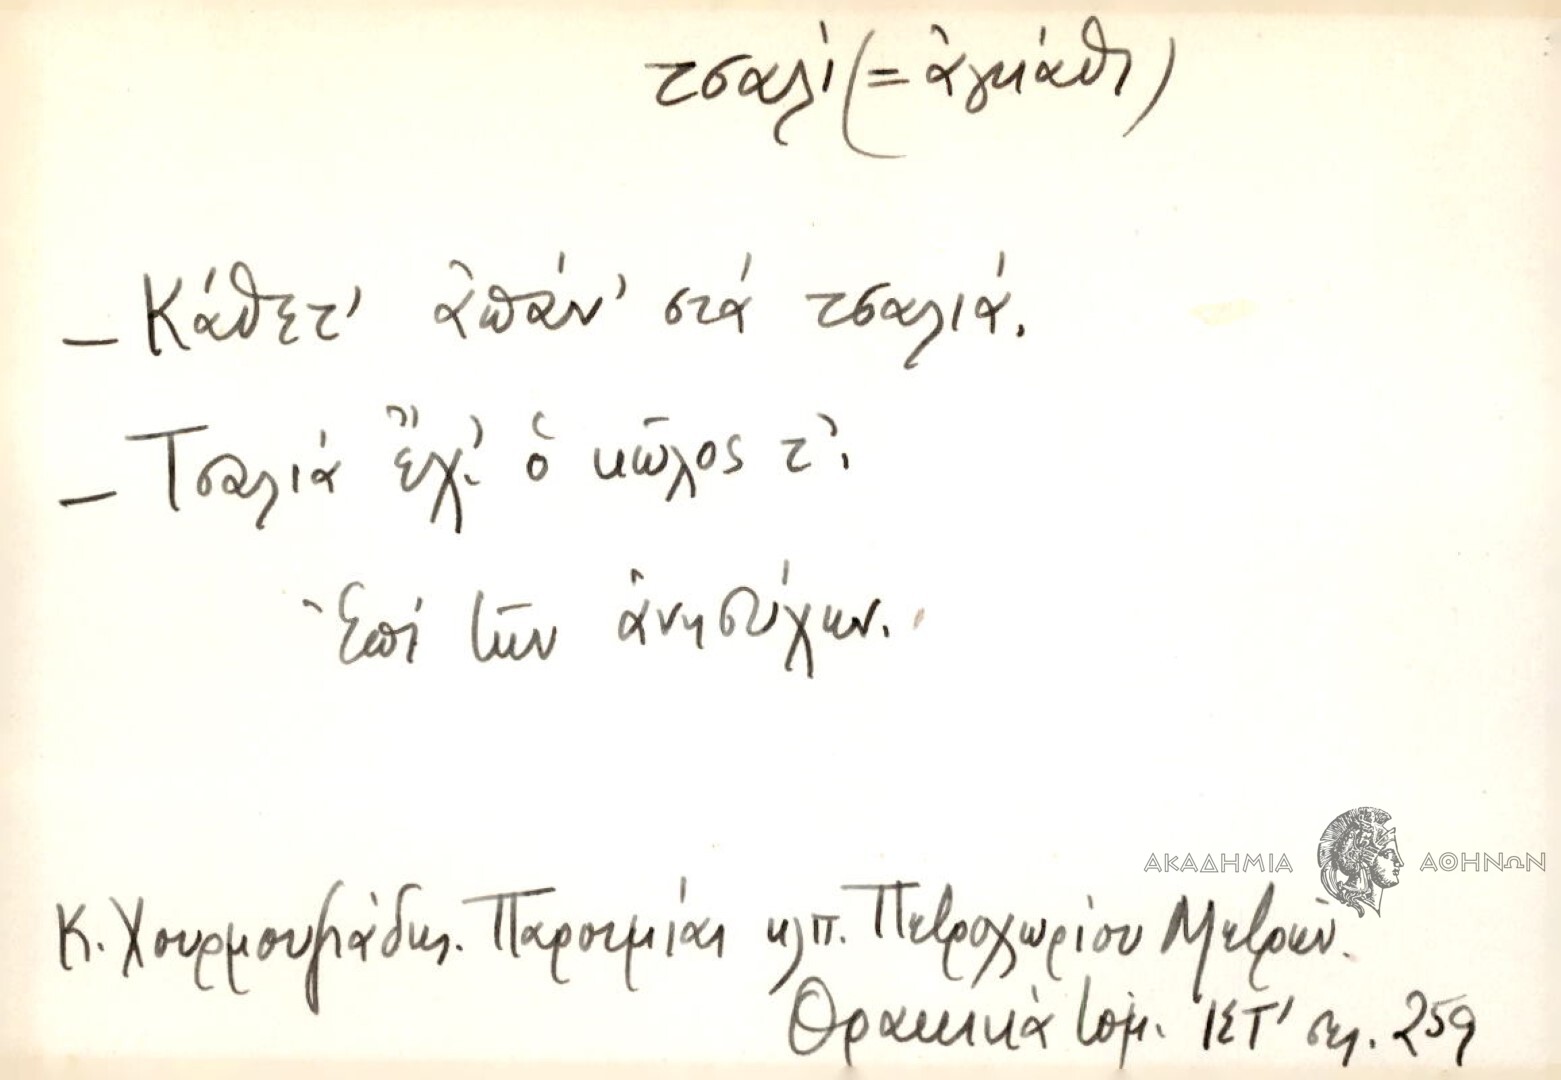 τσαλί (= ἀγκάθι)
– Κάθετ' ἀπάν' στά τσαλιά.
– Τσαλιά ἔχ' ὁ κῶλος τ'.
Ἐπί τῶν ἀνησύχων.
ΑΚΑΔΗΜΙΑ ΑΘΗΝΩΝ
Κ. Χουρμουζιάδης. Παροιμίαι κλπ. Πετροχωρίου Μετρῶν.
Θρακικά τόμ. ΙΣΤ' σελ. 259